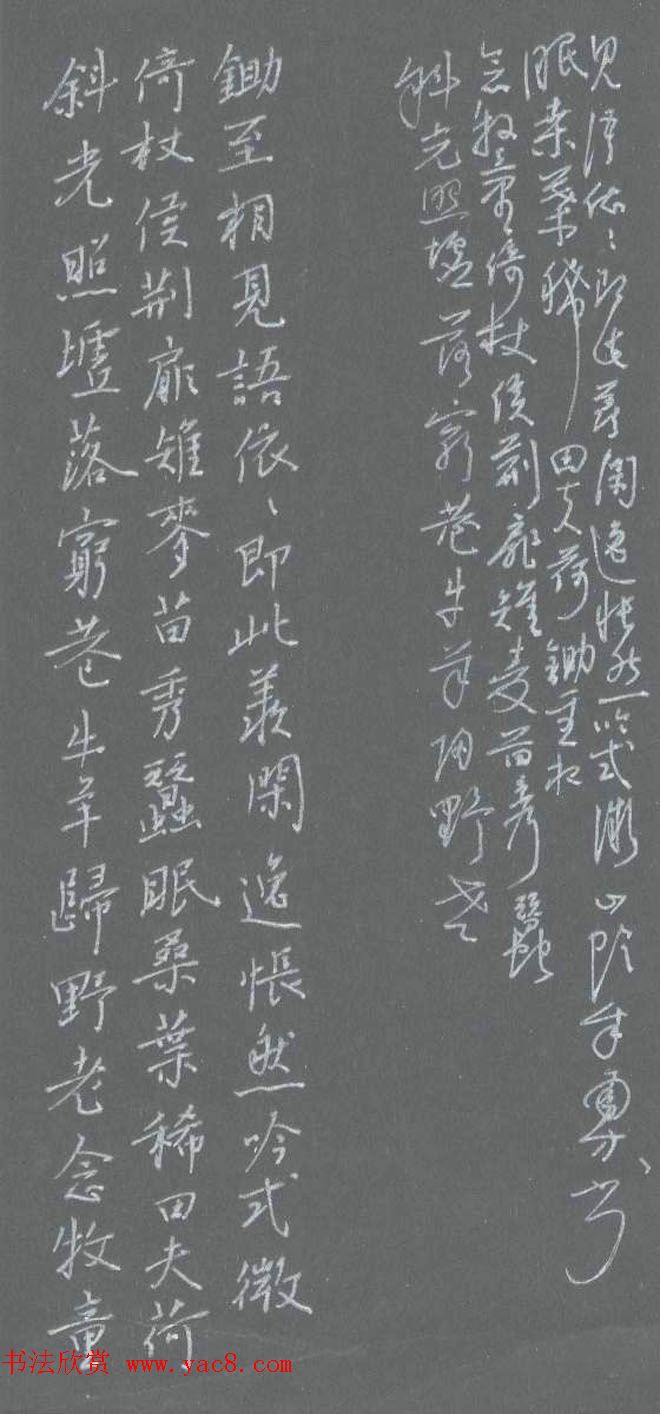 斜光照墟落窮巷牛羊歸野老念牧童
倚杖候荊扉雉麥苗秀蠶眠桑葉稀田夫荷
鋤至相見語依〻即此羨閑逸悵然吟式微
斜光照墟落窮巷牛羊归野老
念牧童倚杖候荊扉雉麦苗秀蠶
眠桑葉稀田夫荷鋤至相
見語依〻即此羨閑逸悵然吟式微
书法欣赏 www.yac8.com